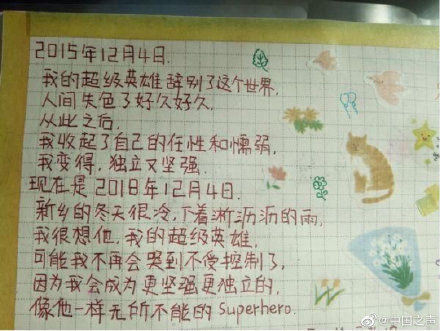 2015年12月4日.
我的超级英雄辞别了这个世界,
人间失色了好久好久,
从此之后,
我收起了自己的任性和懦弱,
我变得,独立又坚强.
现在是2018年12月4日.
新乡的冬天很冷,下着淅沥沥的雨,
我很想他,我的超级英雄,
可能我不再会哭到不受控制了,
因为我会成为更坚强更独立的,
像他一样无所不能的superhero.
@中国之声